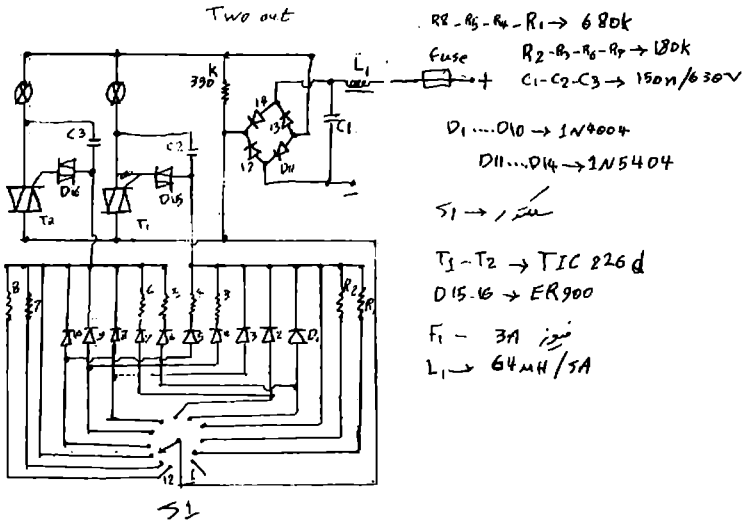 Two out
R8-R5-R4-R1→ 680k
R2-R3-R6-R7→ 180k
C1-C2-C3→ 150n/630V
D1....D10→ 1N4004
D11...D14→ 1N5404
S1→ سلکتور
T1-T2→ TIC 226d
D15-16→ ER900
F1- 3A فیوز
L1→ 64μH/5A
fuse
L1
+
-
390 k
14
13
12
D11
C1
C3
C2
D16
D15
T2
T1
8
7
6
5
4
3
R2
R1
10
9
8
7
6
5
4
3
2
D1
12
1
S1